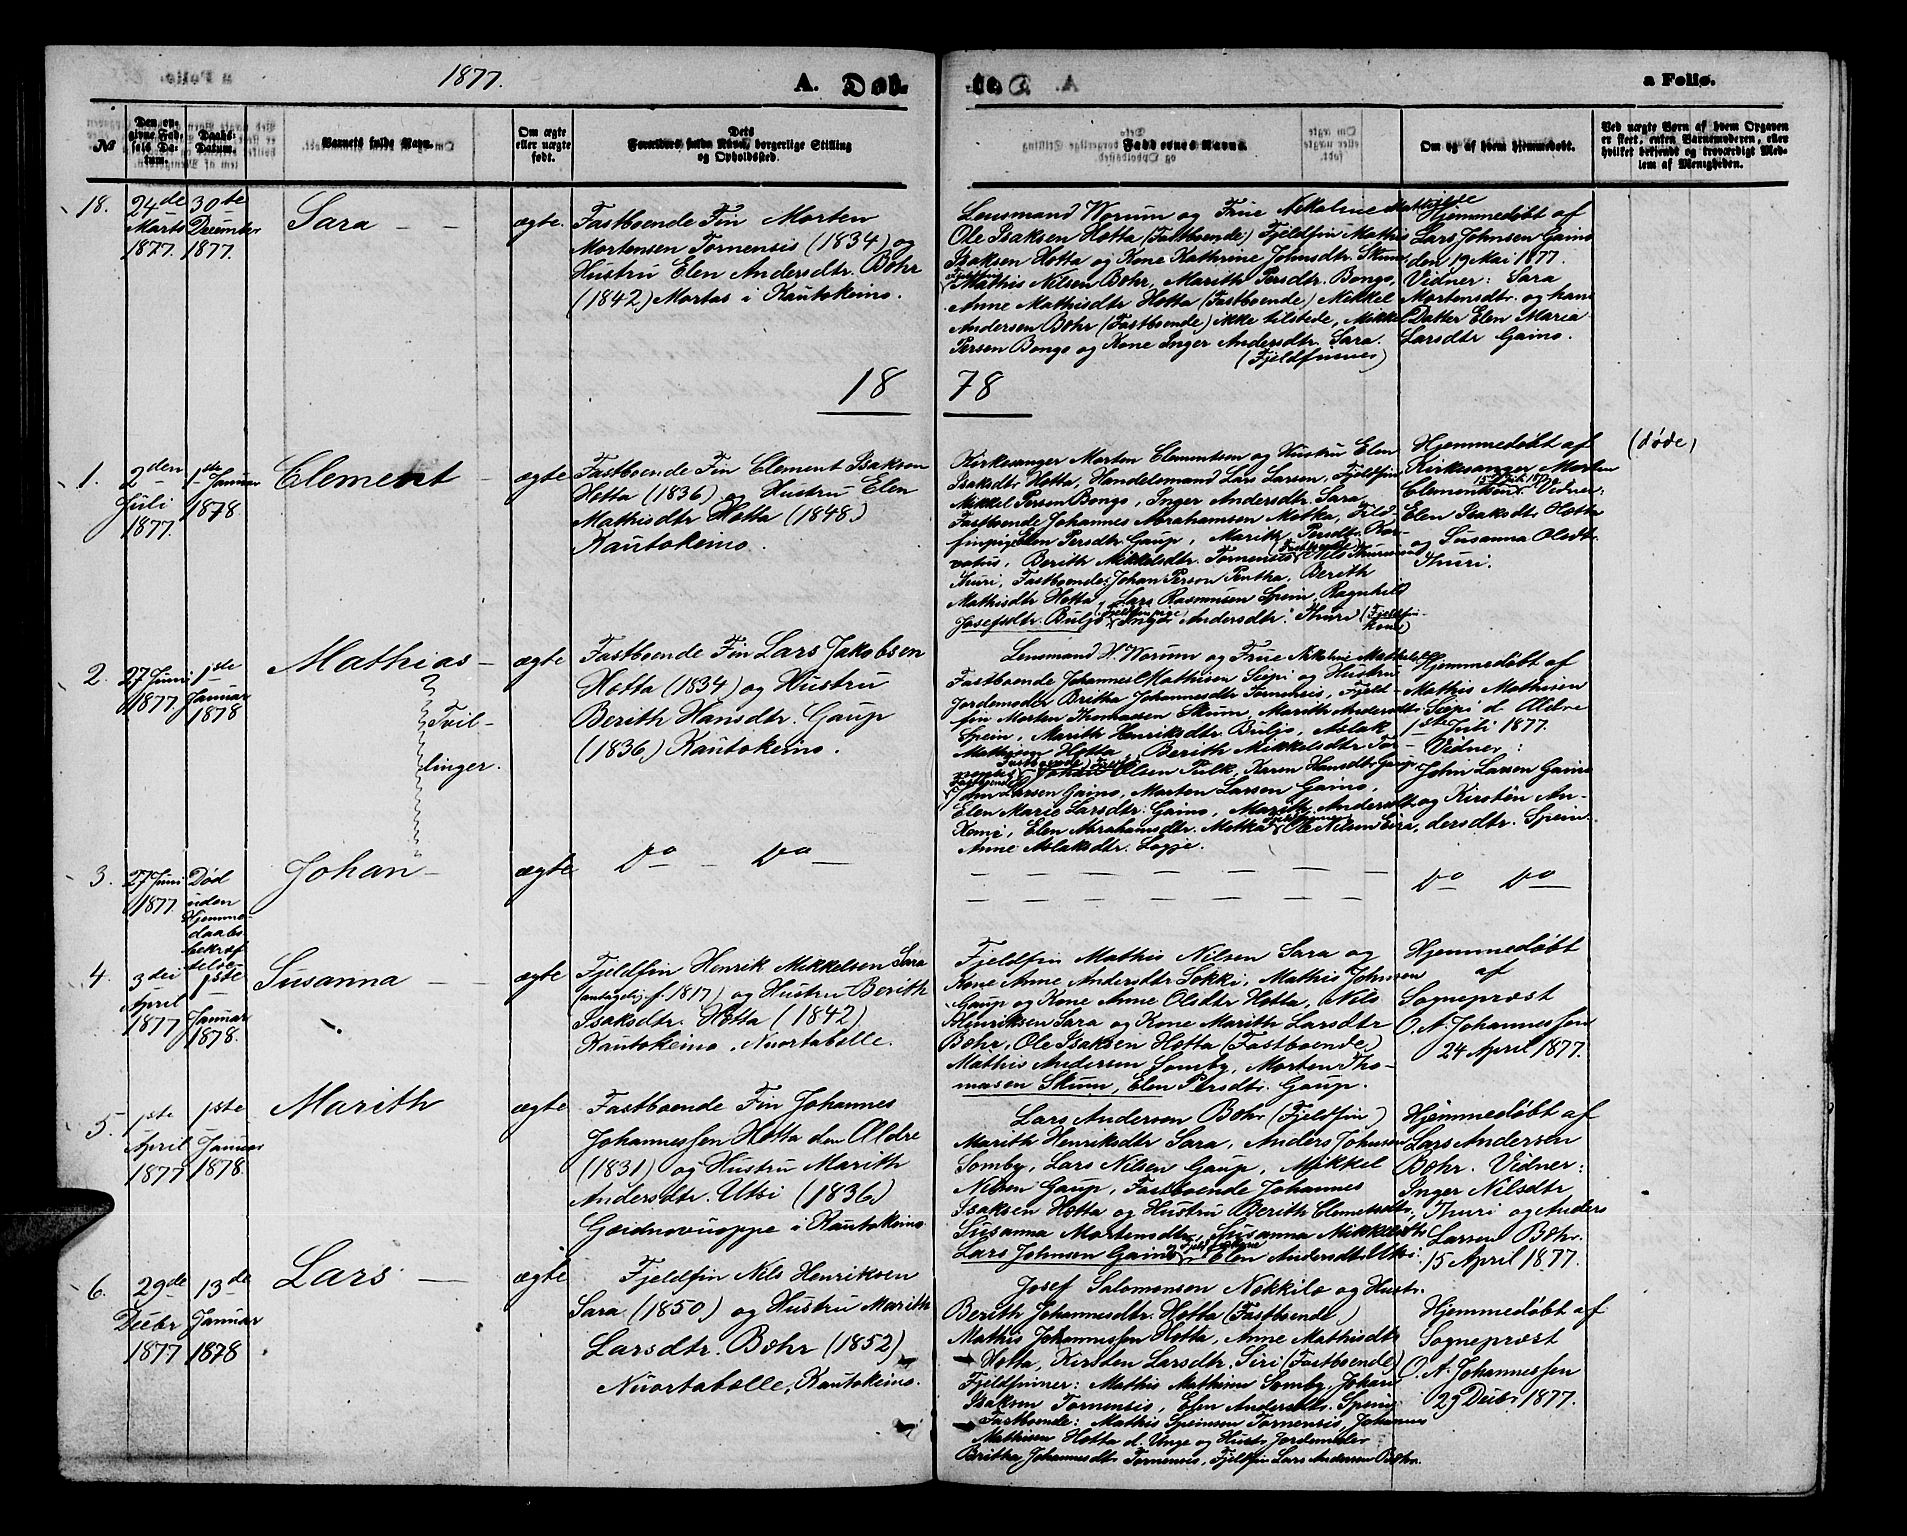 1877.
A. Døb-
te.
a Folio.
№
Den op-
givne Fød-
sels Da-
tum.
Daabs-
Datum.
Barnets fulde Navn.
Om ægte
eller uægte
født.
Dets
Forældres fulde Navn, borgerlige Stilling
og Opholdssted.
Faddernes Navne.
Om og af hvem hjemmedøbt.
Ved uægte Børn af hvem Opgaven
er skeet, enten Barnemoderen, eller
hvilket bekjendt og troværdigt Med-
lem af Menigheden.
18.
24de
Marts
1877.
30te
December
1877.
Sara
ægte.
Fastboende Fin Morten
Mortensen Tornensis (1834) og
Hustru Elen Andersdtr. Bohr
(1842) Mortas i Kautokeino.
Lensmand Worum og Frue Nikoline Mathilde
Ole Isaksen Hotta (Fastboende) Fjeldfin Mathis
Isaksen Hotta og Kone Kathrine Johnsdtr. Skum
Fjeldfin
Mathis Nilsen Bohr, Marith Persdtr. Bongo,
Anne Mathisdtr Hotta (Fastboende) Mikkel
Andersen Bohr (Fastboende) ikke tilstede, Mikkel
Persen Bongo og Kone Inger Andersdtr. Sara.
(Fjeldfinnes)
Hjemmedøbt af
Lars Johnsen Gaino
den 19 Mai 1877.
Vidner: Sara
Mortensdtr. og hans
Datter Elen Maria
Larsdtr Gaino.
18 78
1.
2den
Juli
1877.
1ste Januar
1878.
Clement
ægte
Fastboende Fin Clement Isaksen
Hotta (1836) og Hustru Elen
Mathisdtr Hotta (1848)
Kautokeino.
Kirkesanger Morten Clementsen og Hustru Elen
Isaksdtr Hotta, Handelsmand Lars Larsen, Fjeldfin
Mikkel Persen Bongo, Inger Andersdtr. Sara,
Fastboende Johannes Abrahamsen Motka, Fjeld-
finpige Elen Persdtr. Gaup, Marith Persdtr.
Berith Mikkelsdtr. Tornensis
Thuri, Fastboende: Johan Person Pentha, Berith
Mathisdtr Hotta, Lars Rasmusen Spein, Ragnhild
Josefsdtr. Buljo (Fjeldfinpige) Inger Andersdtr. Thuri (Fjeldfin-
kone)
Hjemmedøbt af
Kirkesanger Morten
Clementsen. Vidner:
Elen Isaksdtr Hotta
og Susanna Olsdtr.
Thuri.
(døde)
2.
27 Juni
1877.
1ste
Januar
1878
Mathias
Tvil-
linger.
ægte
Fastboende Fin Lars Jakobsen
Hotta (1834) og Hustru
Berith Hansdtr. Gaup
(1836) Kautokeino.
Lensmand H. Worum og Frue Nikoline Mathilde
Fastboende Johannes Mathisen Siepi og Hustru
Jordemoder Britha Johannesdtr Tornensis, Fjeld-
fin Morten Thomassen Skum, Marith Andersdtr.
Spein, Marith Henriksdtr. Buljo, Aslak
Mathisen Hotta, Berith Mikkelsdtr Tor-
nensis Johan Olsen Pulk, Karen Hansdtr Gaup,
John Larsen Gaino, Morten Larsen Gaino,
Elen Marie Larsdtr: Gaino, Marith Andersdtr
Kemi, Elen Abrahamsdtr. Motka Ole Nilsen Eira,
Anne Aslaksdtr. Logje.
Hjemmedøbt af
Mathis Mathisen
Siepi d. Ældre
1ste Juli 1877.
Vidner:
John Larsen Gaino
og Kirsten An-
dersdtr. Spein.
3.
27 Juni
1877.
Død
uden
Hjemme-
daabs-
bekræf-
telse.
Johan
ægte
do do
do do
4.
3die
April
1877
1ste
Januar
1878.
Susanna
ægte
Fjeldfin Henrik Mikkelsen Sara
(antagelig f. 1817) og Hustru Berith
Isaksdtr. Hotta (1842)
Kautokeino, Nuortabelle.
Fjeldfin Mathis Nilsen Sara og
Kone Anne Andersdtr Sokki, Mathis Johnsen
Gaup og Kone Anne Olsdtr Hotta, Nils
Henriksen Sara og Kone Marith Larsdtr
Bohr, Ole Isaksen Hotta (Fastboende)
Mathis Andersen Somby, Morten Tho-
masen Skum, Elen Persdtr. Gaup.
Hjemmedøbt
af
Sogneprøst
O. A. Johannessen
24 April 1877.
5.
1ste
April
1877
1ste
Januar
1878.
Marith
ægte
Fastboende Fin Johannes
Johannessen Hotta den Ældre
(1831) og Hustru Marith
Andersdtr. Utsi (1836)
Goidnovuoppe i Kautokeino.
Lars Andersen Bohr (Fjeldfin)
Marith Henriksdtr Sara, Anders Johnsen
Somby, Lars Nilsen Gaup, Mikkel
Nilsen Gaup, Fastboende Johannes
Isaksen Hotta og Hustru Berith Clemetsdtr,
Susanna Mortensdtr, Susanna Mikkelsdtr
Lars Johnsen Gaino Elen Andersdtr. Utsi.
Hjemmedøbt af
Lars Andersen
Bohr. Vidner:
Inger Nilsdtr
Thuri og Anders
Larsen Bohr.
15 April 1877.
6.
29de
Decbr
1877
13de
Januar
1878
Lars
ægte
Fjeldfin Nils Henriksen
Sara (1850) og Hustru Marith
Larsdtr. Bohr (1852)
Nuortabelle, Kautokeino.
Josef Salomonsen Nekkilo og Hustr.
Berith Johannesdtr. Hotta (Fastboende)
Mathis Johannessen Hotta, Anne Mathisdtr
Hotta, Kirsten Larsdtr. Siri (Fastboende)
Fjeldfinner: Mathis Mathisen Somby, Johan
Isaksen Tornensis, Elen Andersdtr. Spein,
Fastboende: Mathis Speinsen Tornensis, Johannes
Mathisen Hotta d. Unge og Hustr. Jordemoder
Beritha Johannesdtr Tornensis, Fjeldfin Lars Andersen Bohr.
Hjemmedøbt af
Sogneprøst
O. A. Johannessen
29 Decbr 1877.